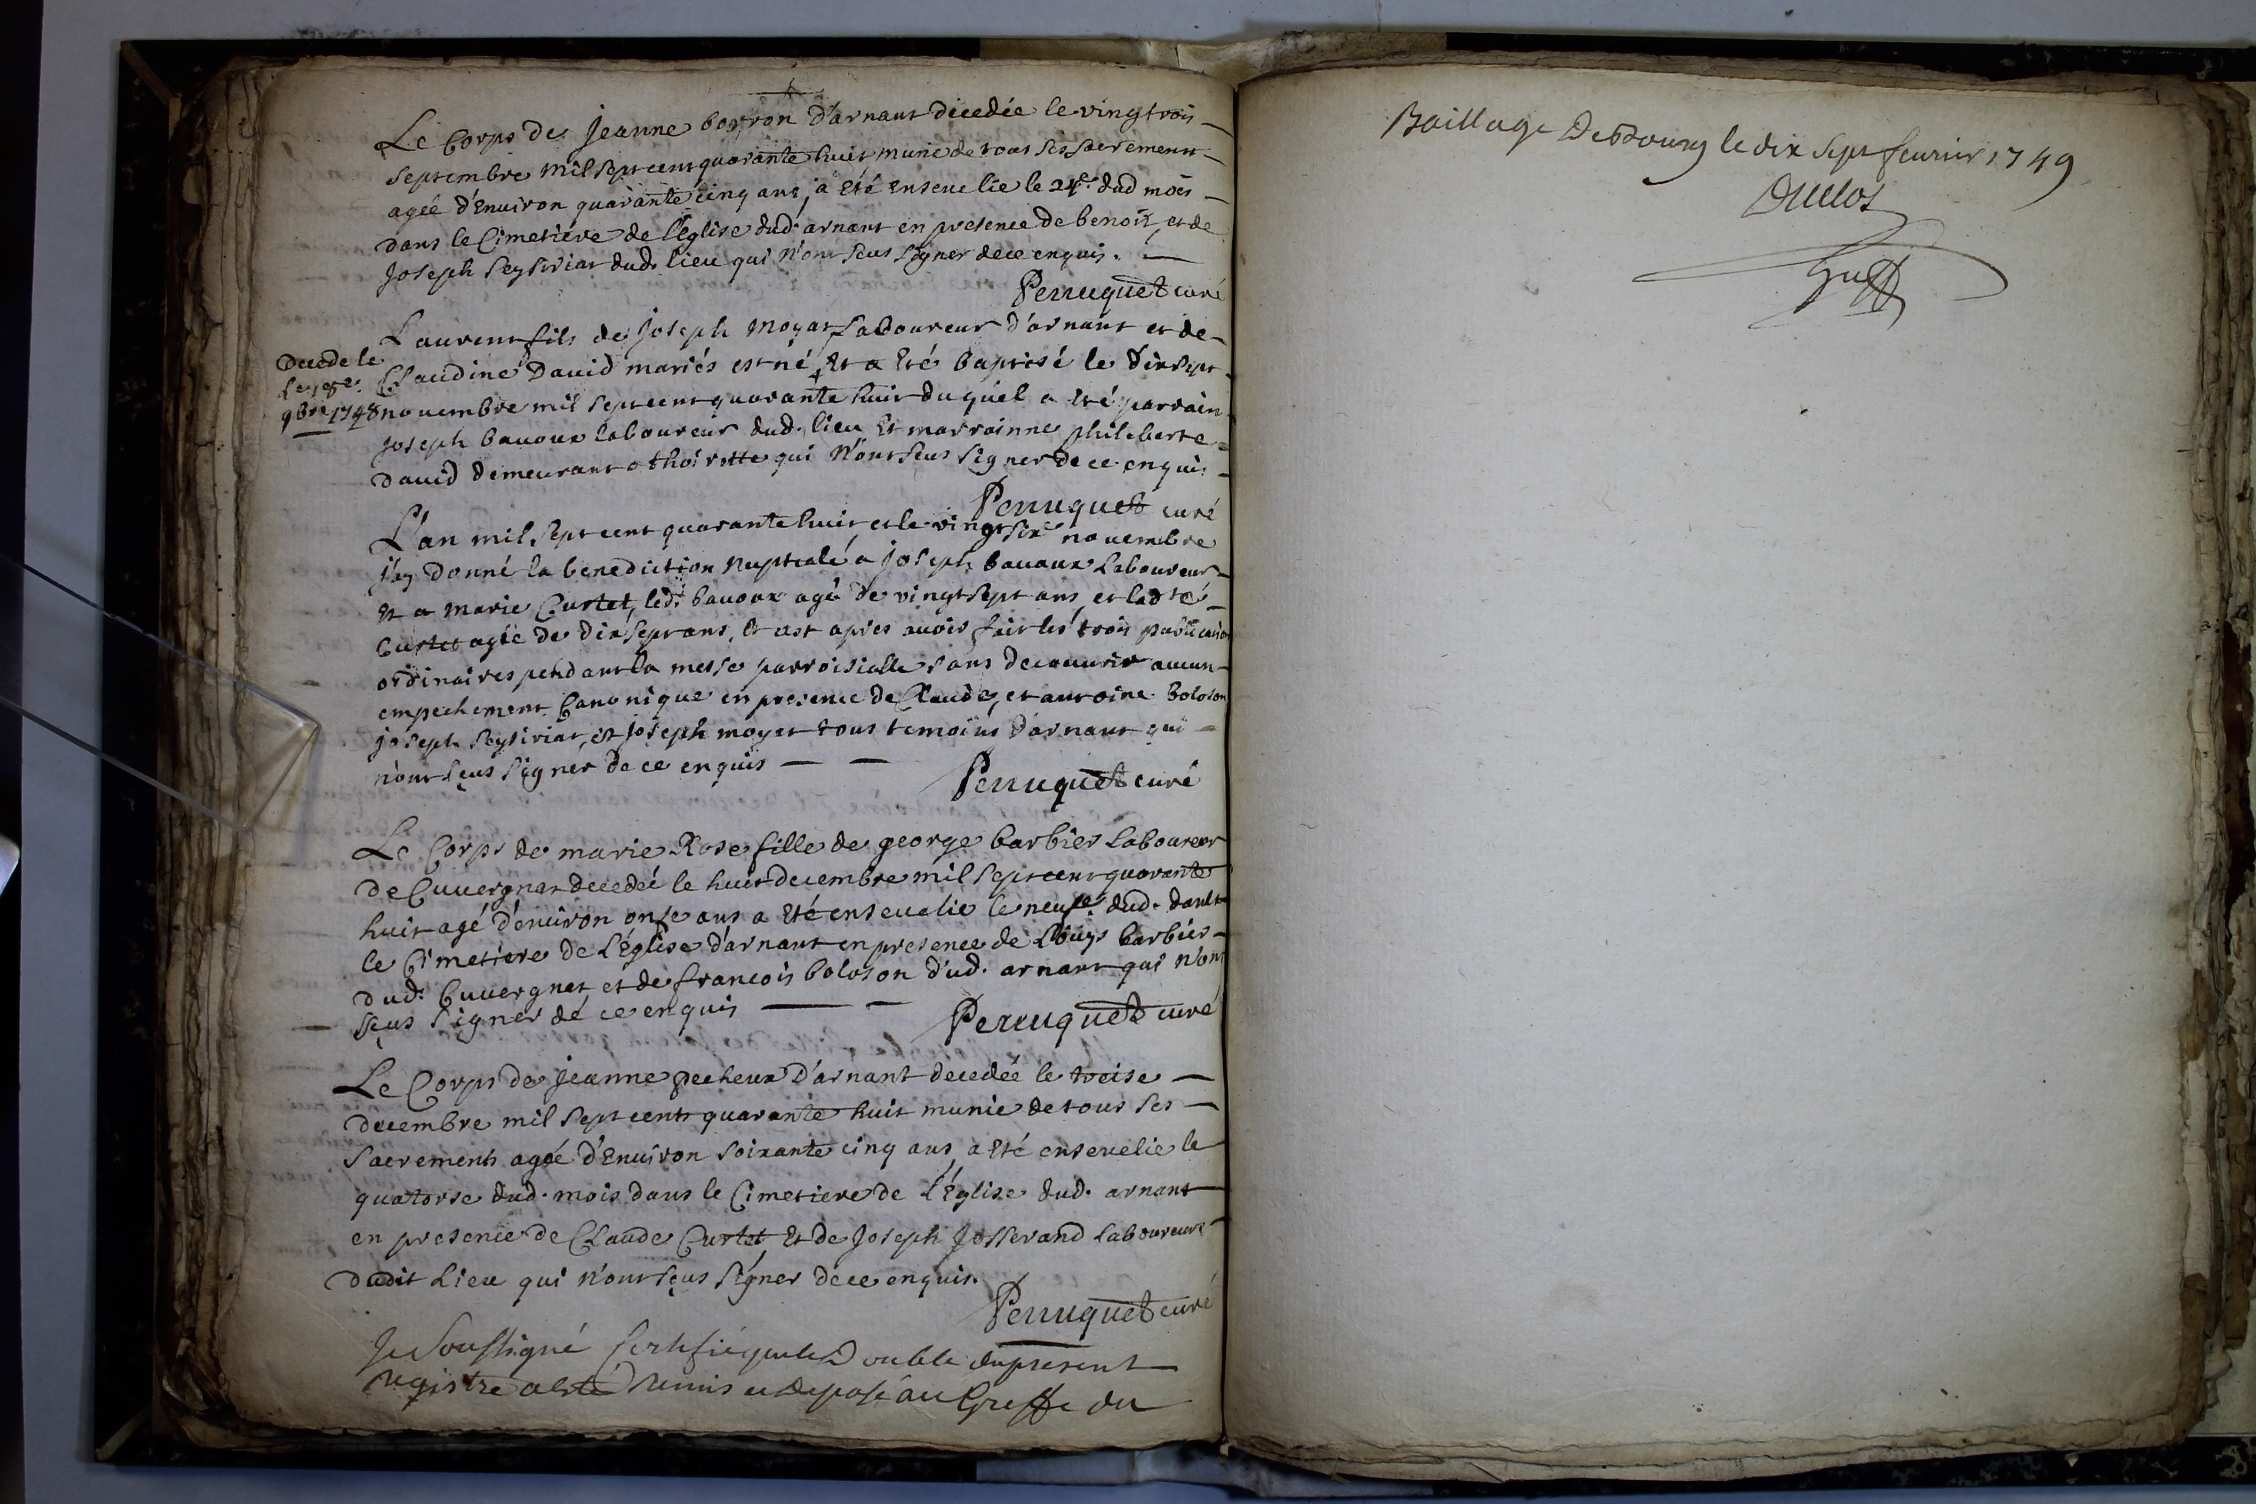 Le Corps de Jeanne boyron d'arnant decedée le vingtrois
septembre mil sept cent quarante huit munie de tous ses sacrements
agée d'Environ quarante cinq ans, a Eté ensevelie le 24e. dud mois
dans le Cimetiére de l'Eglise dud. arnant en presence de benoit, et de
Joseph Seysiriat dud. lieu qui n'ont seus signer de ce enquis.
Perruquet curé
Laurent fils de Joseph Moyat Laboureur d'arnant et de
Claudine David mariés est né, Et a Eté baptisé le dixsept
novembre mil sept cent quarante huit duquel a Eté parrain
Joseph bavoux laboureur dud. lieu Et marrainne philiberte
David demeurant a thoirette qui n'ont seus signer de ce enquis
Perruquet curé
Decede le
le 18e.
9bre 1748
L'an mil sept cent quarante huit, et le vingt six novembre
j'ay Donné la benediction nuptiale a joseph bavoux Laboureur
Et a marie Curtet, led. bavoux agé de vingt sept ans, et lad te
Curtet agée de dix sept ans, Et c'est apres avoir fait les trois publication
ordinaires pendant la messe parroisialle sans decouvrir aucun
empechement Canonique en presence de Claude, et antoine boloson
joseph seysiriat, et joseph moyat tous temoins d'arnant qui
n'ont sçus signer de ce enquis
Perruquet curé
Le Corps de marie Rose fille de george barbier Laboureur
de Cuvergnat decedeé le huit decembre mil sept cent quarante
huit agé d'environ onse ans a Eté ensevelie le neufe. dud. dans
le Cimetiere de L'église d'arnant en presence de Louys barbier
dud. Cuvergnat, et de francois boloson dud. arnant qui n'ont
sçus signer de ce enquis
Perruquet curé
Le Corps de Jeanne pecheux d'arnant decedée le treise
decembre mil sept cents quarante huit munie de tous ses
sacrements agée d'Environ soixante cinq ans, a Eté ensevelie le
quatorse dud. mois dans le Cimetiere de L'église dud. arnant
en presence de Claude Curtet, Et de Joseph Josserand Laboureurs
dudit Lieu qui n'ont sçus signer de ce enquis.
Perruquet curé
Je Soussigné Certifie que le Double du present
registre a esté remis et deposé au Greffe du
Baillage De Bourg le dix sept fevrier 1749
Duclos
Greff